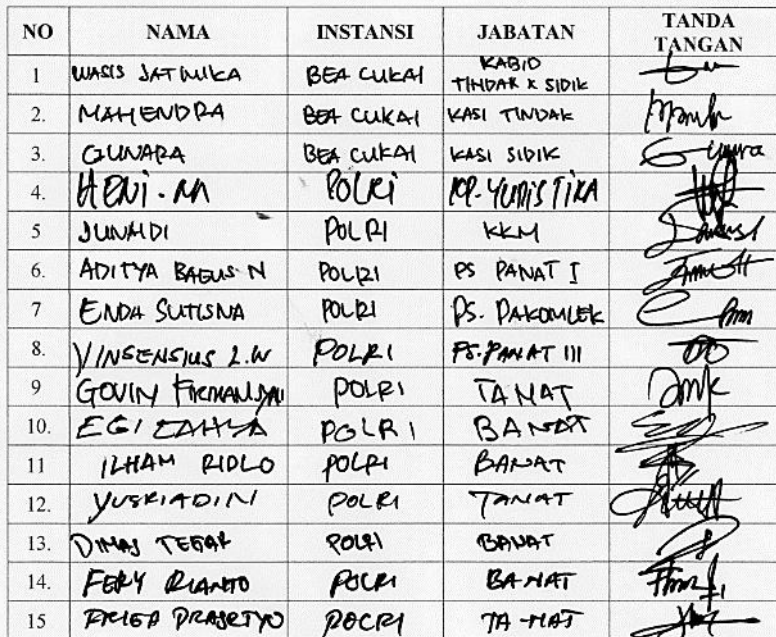 NO NAMA INSTANSI JABATAN TANDA TANGAN
1 WASIS JATMIKA BEA CUKAI KABID TINDAK & SIDIK
2. MAHENDRA BEA CUKAI KASI TINDAK
3. GUNARA BEA CUKAI KASI SIDIK
4. HENI. POLRI KP. YUDISTIRA
5 JUNAIDI POLRI KKM
6. ADITYA BAGUS N POLRI PS PANAT I
7 ENDA SUTISNA POLRI PS. PAKOMLEK
8. VINSENSIUS L.W POLRI PS. PANAT III
9 GOVIN POLRI TANAT
10. EGI CAHYA POLRI BANAT
11 ILHAM RIDLO POLRI BANAT
12. YUSRIADIN POLRI TANAT
13. DIMAS TEGAR POLRI BANAT
14. FERY RIANTO POLRI BANAT
15 PRASETYO POLRI TANAT